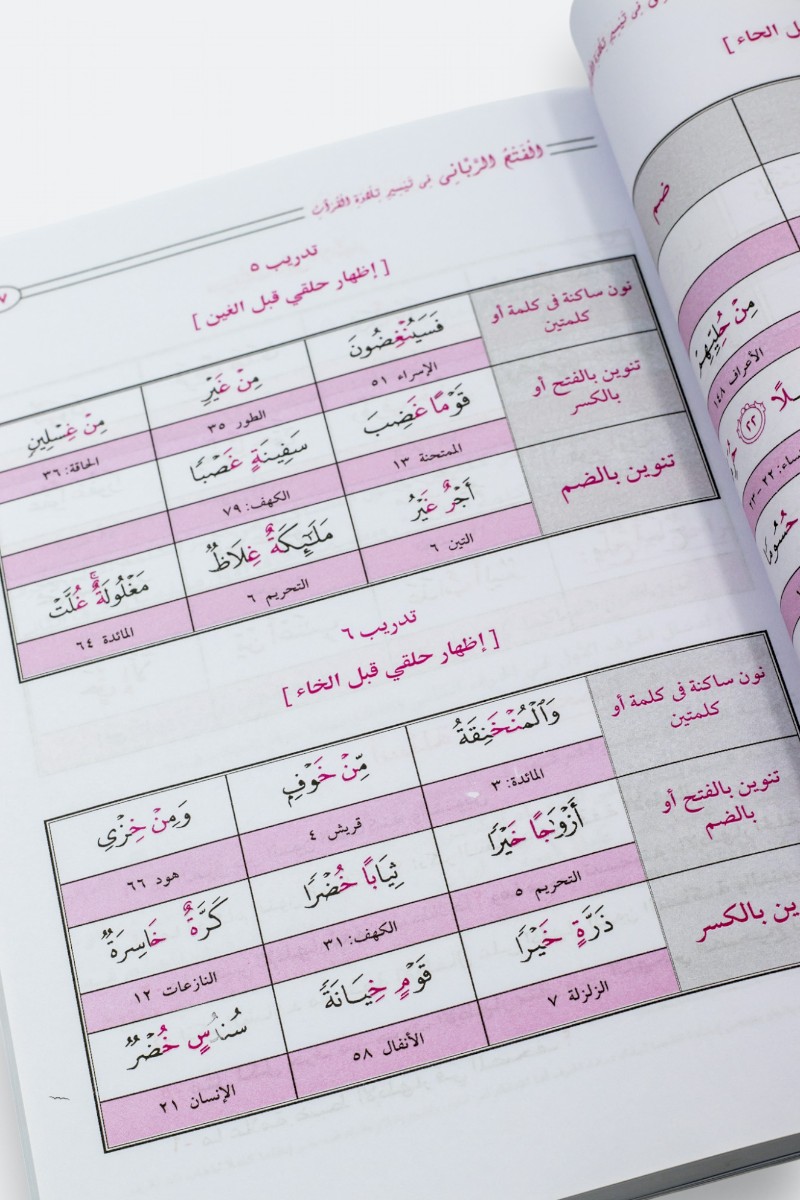 الْفَتْحُ الرَّبَّانِي فِي تَيْسِيرِ تِلَاوَةِ الْقُرْآنِ
٧
تدريب ٥
[ إظهار حلقي قبل الغين ]
نون ساكنة في كلمة أو كلمتين
فَسَيُنْغِضُونَ
مِنْ غَيْرِ
مِنْ غِسْلِينٍ
الإسراء ٥١
الطور ٣٥
الحاقة: ٣٦
تنوين بالفتح أو بالكسر
قَوْمًا غَضِبَ
سَفِينَةٍ غَصْبًا
الممتحنة ١٣
الكهف: ٧٩
تنوين بالضم
أَجْرٌ غَيْرُ
مَلَٰٓئِكَةٌ غِلَاظٌ
مَغْلُولَةٌ ۚ غُلَّتْ
التين ٦
التحريم ٦
المائدة ٦٤
تدريب ٦
[ إظهار حلقي قبل الخاء ]
نون ساكنة في كلمة أو كلمتين
وَٱلْمُنْخَنِقَةُ
مِّنْ خَوْفٍ
وَمِنْ خِزْيِ
المائدة: ٣
قريش ٤
هود ٦٦
تنوين بالفتح أو بالضم
أَزْوَٰجًا خَيْرًا
ثِيَابًا خُضْرًا
كَرَّةٌ خَاسِرَةٌ
التحريم ٥
الكهف: ٣١
النازعات ١٢
ين بالكسر
ذَرَّةٍ خَيْرًا
قَوْمٍ خِيَانَةً
سُندُسٍ خُضْرٌ
الزلزلة ٧
الأنفال ٥٨
الإنسان ٢١
ل الحاء ]
ضم
مِنْ حُلِيِّهِمْ
الأعراف ١٤٨
٢٢
٢٢ – ٢٣
حُسُومًا